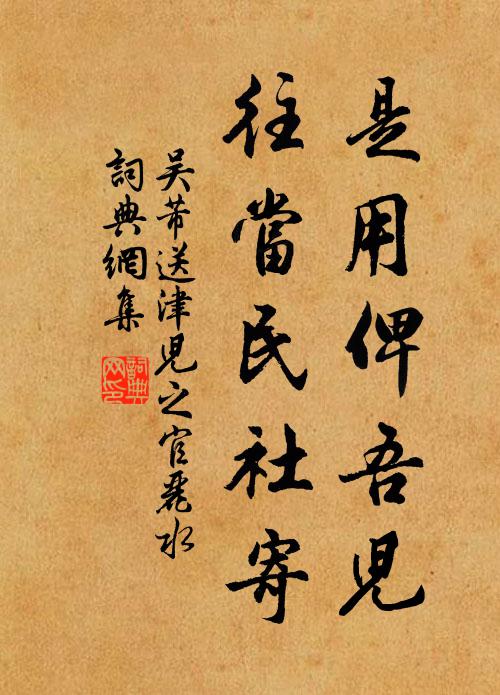 是用俾吾兒
往當民社寄
吴芾送津兒之官麗水
詞典網集
詞典網印